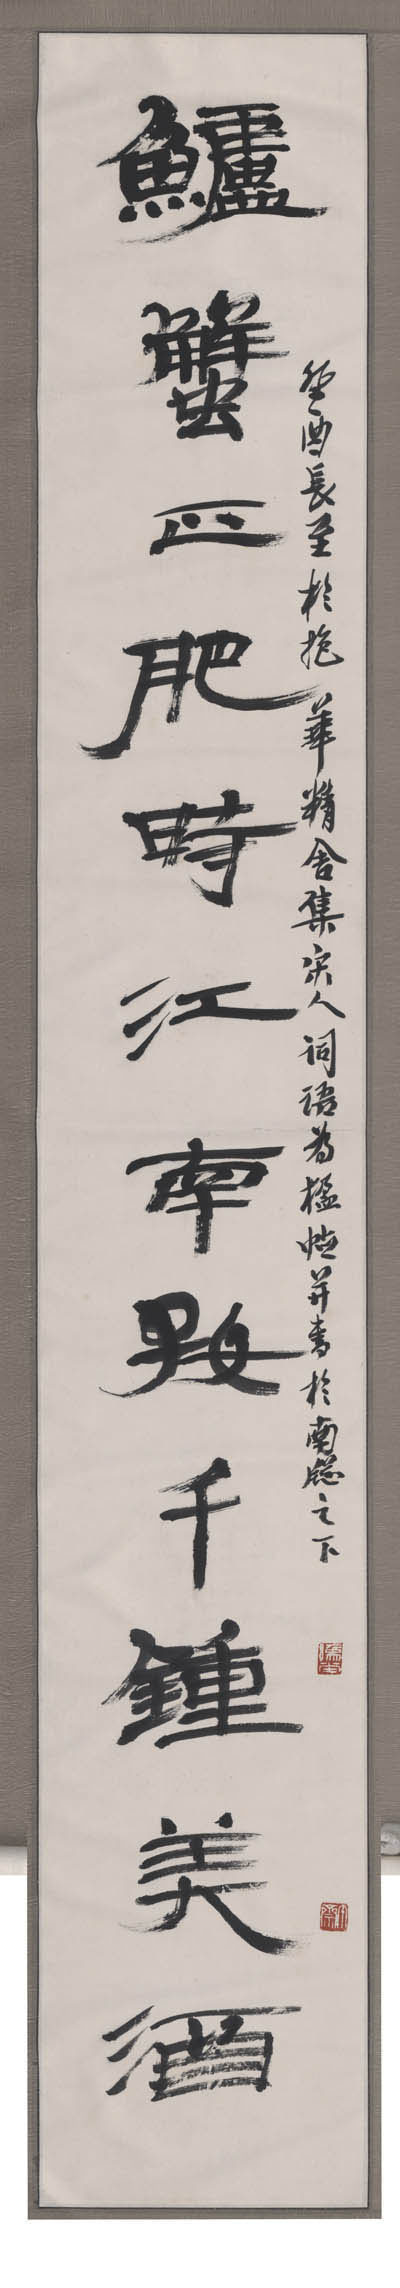 鱸蟹正肥時江南好千鍾美酒
癸酉長至於抱華精舍集宋人詞語為楹帖并書於南牕之下